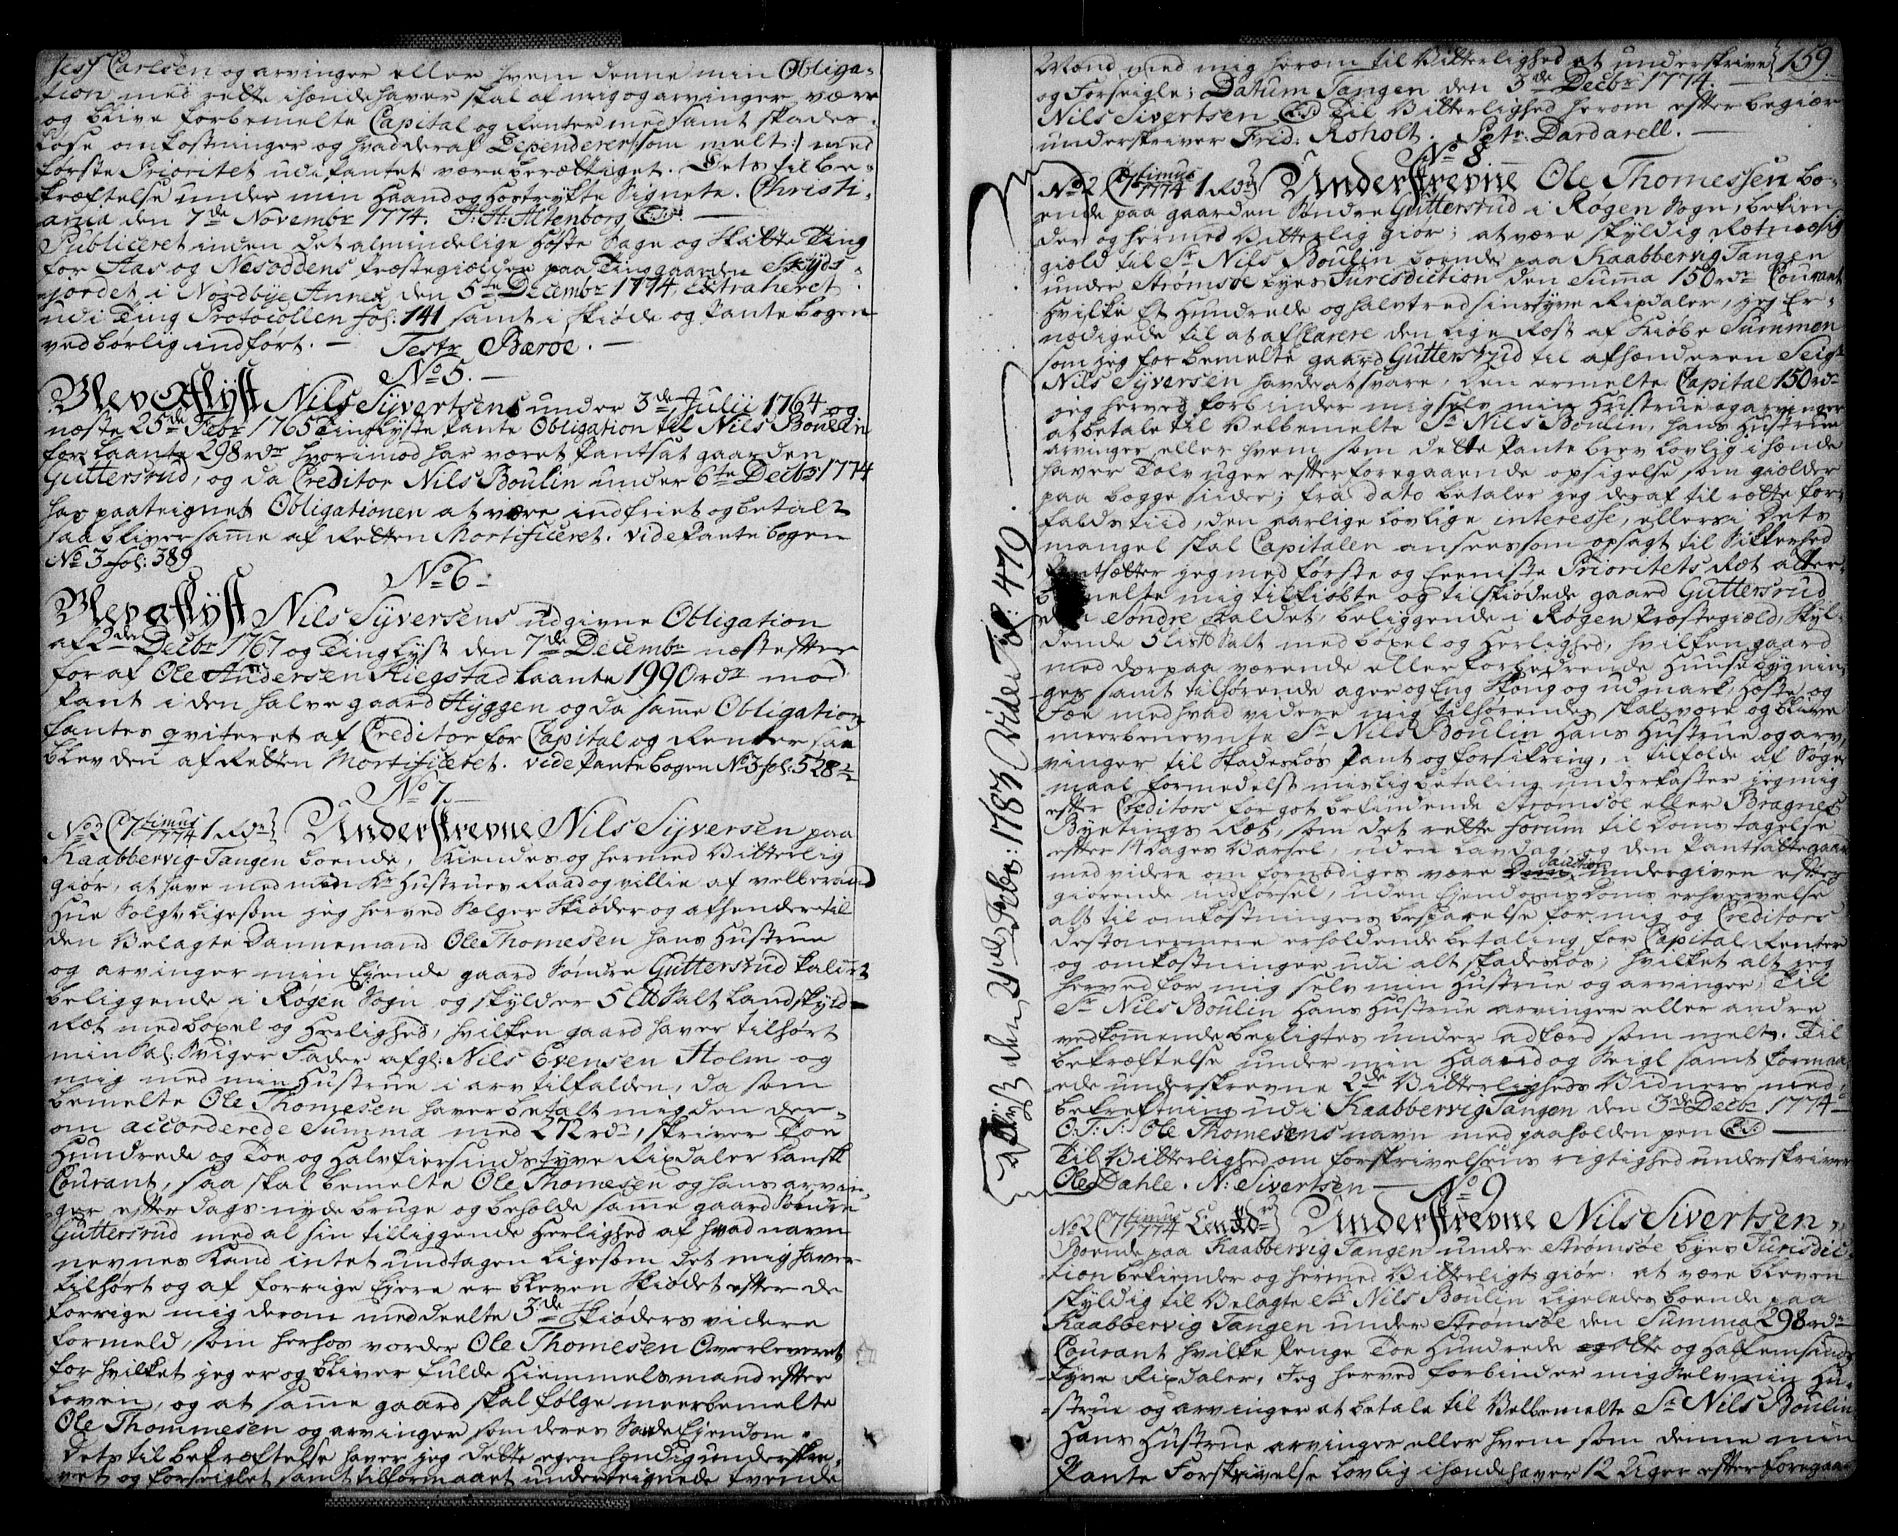 Jess Carlsen og arvinger eller hvem denne min Obliga-
tion med rette ihændehaver skal af mig og arvinger være
og blive forbemelte Capital og Renter med samt skades-
løse omkostninger og hvad deraf Dependerer som melt :/ med
første Prioritet udi Pantet være berettiget. Dets til be-
kræftelse under min Haand og hostrykte Signete. Christi-
ania den 7de Novembr 1774. J: H: Altenborg (L.S.)
Publiceret inden det almindelige Høste Sage og Skatte Ting
for Aas og Nesoddens Præstegield paa Tinggaarden Skyds-
jordet i Nordbye Annex den 5te Decembr 1774, Extraheret
udi Ting Protocollen fol: 141 samt i Skiøde og Pantebogen
vedbørlig indført. — Testr Bæroe. —
No 5. —
Blev Aflyst Nils Syvertsens under 3de Julii 1764 og
næste 25de Febr 1765 Tinglyste Pante Obligation til Nils Boulin
for laante 298 rdr hvorimod har været Pantsat gaarden
Guttersrud, og da Creditor Nils Boulin under 6te Decbr 1774
har paateignet Obligationen at være indfriet og betalt
saa bliver samme af Retten Mortificeret. vide Pantebogen
No 3 fol: 389
No 6 —
Blev aflyst Nils Syversens udgivne Obligation
af 2den Decbr 1767 og Tinglyst den 7de Decembr næstefter
for af Ole Andersen Kiegstad laante 1990 rdr mod
Pant i den halve gaard Hyggen og da samme Obligation
fantes qviteret af Creditor for Capital og Renter saa
blev den af Retten Mortificeret. vide Pantebogen No 3 fol: 528
No 7. —
No 2 C 7timus 1774 1 Rdr Underskrevne Nils Syversen paa
Kaabbervig Tangen boende, kiendes og hermed Vitterlig
giør, at have med min Kr Hustrues Raad og villie af velberaad
Hue Solgt, ligesom jeg herved Sælger Skiøder og afhender til
den Velagte Dannemand Ole Thomesen hans Hustrue
og arvinger min Ejende gaard Søndre Guttersrud kaldet
beliggende i Røgen Sogn og skylder 5 Ltt Salt Landskyld
Ræt med boxel og Herlighed, hvilken gaard haver tilhørt
min Sal: Sviger Fader afgl: Nils Evensen Holm og
mig med min Hustrue i arv tilfalden, da som
bemelte Ole Thomesen haver betalt mig den der-
om accorderede Summa med 272 rdr, skriver Toe
Hundrede og Toe og Halvfiersindstyve Rixdaler dansk
Courant, saa skal bemelte Ole Thomesen og hans arvin-
ger efter dags nyde bruge og beholde samme gaard Søndre
Guttersrud med al sin tilliggende Herlighed af hvad navn
nevnes kand intet undtagen ligesom det mig haver
tilhørt og af forrige Ejere er bleven Skiødet efter de
forrige mig derom meddeelte 3de Skiøders videre
formeld, som herhos vorder Ole Thomesen Overleveret
for hvilket jeg er og bliver fulde Hiemmelsmand efter
Loven, og at samme gaard skal følge meerbemelte
Ole Thommesen og arvinger som deres Sande Ejendom.
Dets til bekræftelse haver jeg dette egenhændig underskre-
vet og forseiglet samt tilformaaet undertegnede tvende
159
Mænd med mig herom til Vitterlighed at underskrive
og Forseigle; Datum Tangen den 3de Decbr 1774. —
Nils Sivertsen (L.S.) Til Vitterlighed herom efter begiær
underskriver Frid: Roholt. Petr Dardarell. —
No 8
No 2 C 7timus 1774 1 Rdr Underskrevne Ole Thomessen bo-
ende paa gaarden Søndre Guttersrud i Røgen Sogn, bekien-
der og hermed Vitterlig giør; at være skyldig Retmæsig
gield til Sr Nils Boulin boende paa Kaabbervig Tangen
under Strømsøe byes Jurisdiction den Summa 150 rdr Courant
Hvilke Et Hundrede og halvtredsinstyve Rixdaler, jeg Er
nødigede til at afklarere den lige Rest af Kiøbe Summen
som jeg for bemelte gaard Guttersrud til afhænderen Seigr
Nils Syversen havde at svare, den ermelte Capital 150 rdr
jeg herved forbinder mig selv min Hustrue og arvinger
at betale til Velbemelte Sr Nils Boulin, hans Hustrue
arvinger eller hvem som dette Pante brev lovlig ihænde
haver Tolv uger efter foregaaende opsigelse som gielder
paa begge sider; fra dato betaler jeg deraf til rette for-
falds tiid, den aarlige lovlige interesse, ellers i Dets
mangel skal Capitalen ansees som opsagt til Sikkerhed
Pantsætter jeg med første og Eeniste Prioritets Ræt aller-
bemelte mig tilkiøbte og tilskiødede gaard Guttersrud
den Søndre kaldet, beliggende i Røgen Præstegield, Skyl-
dende 5 Lispd Salt med boxel og Herlighed, hvilken gaard
med dorpaa værende eller forbedrende Huusebygnin-
ger samt tilhørende ager og Eng Skoug og udmark, Heste og
Fæe med hvad videre mig tilhørendes skal være og blive
meerbenevnte Sr Nils Boulin Hans Hustrue og arv-
vinger til Skadesløs Pant og forsikring, i tilfælde af Søgs-
maal formedelst mislig betaling underkaster jeg mig
efter Creditors for got befindende Strømsøe eller Bragnes
Byetings Ræt, som det rette forum til Doms tagelse
efter 14 Dages Varsel, uden Lavdag, og den Pantsatte gaard
med videre om fornødiges være undergiven efter
giørende indførsel, uden Ejendoms Doms erhvervelse
alt til omkostningers besparelse for mig og Creditors
destonermere erholdende betaling for Capital Renter
og omkostninger udi alt skadesløs; hvilket alt jeg
herved for mig selv min Hustrue og arvinger, til
Sr Nils Boulin hans Hustrue arvinger eller andre
vedkommende bepligtes under adfærd som melt. Til
bekræftelse under min Haand og Seigl samt formaa-
ede underskrevne 2de Vitterligheds Vidners med-
bekreftning udi Kaabbervig Tangen den 3de Decbr 1774
O. T: S: Ole Thomesens navn med paaholden pen (L.S.)
Til Vitterlighed om forskrivelsens rigtighed underskriver
Ole Dahle. N: Sivertsen — No 9
No 2 C 7timus 1774 Underskrevne Nils Sivertsen
Boende paa Kaabbervig Tangen under Strømsøe byes Jurisdic-
tion bekiender og hermed Vitterligt giør, at være bleven
skyldig til Velagte Sr Nils Boulin ligeledes boende paa
Kaabbervig Tangen under Strømsøe den Summa 298 rdr
Courant hvilke Penge Toe Hundrede otte og Halfemsinds-
tyve Rixdaler, Jeg herved forbinder mig selv min Hu-
strue og arvinger at betale til Velbemelte Sr Nils Boulin
Hans Hustrue arvinger eller hvem som denne min
Pante Forskrivelse lovlig ihændehaver 12 Uger efter foregaa-
Aflyst den Febr: 1783 Vide Fol: 479.